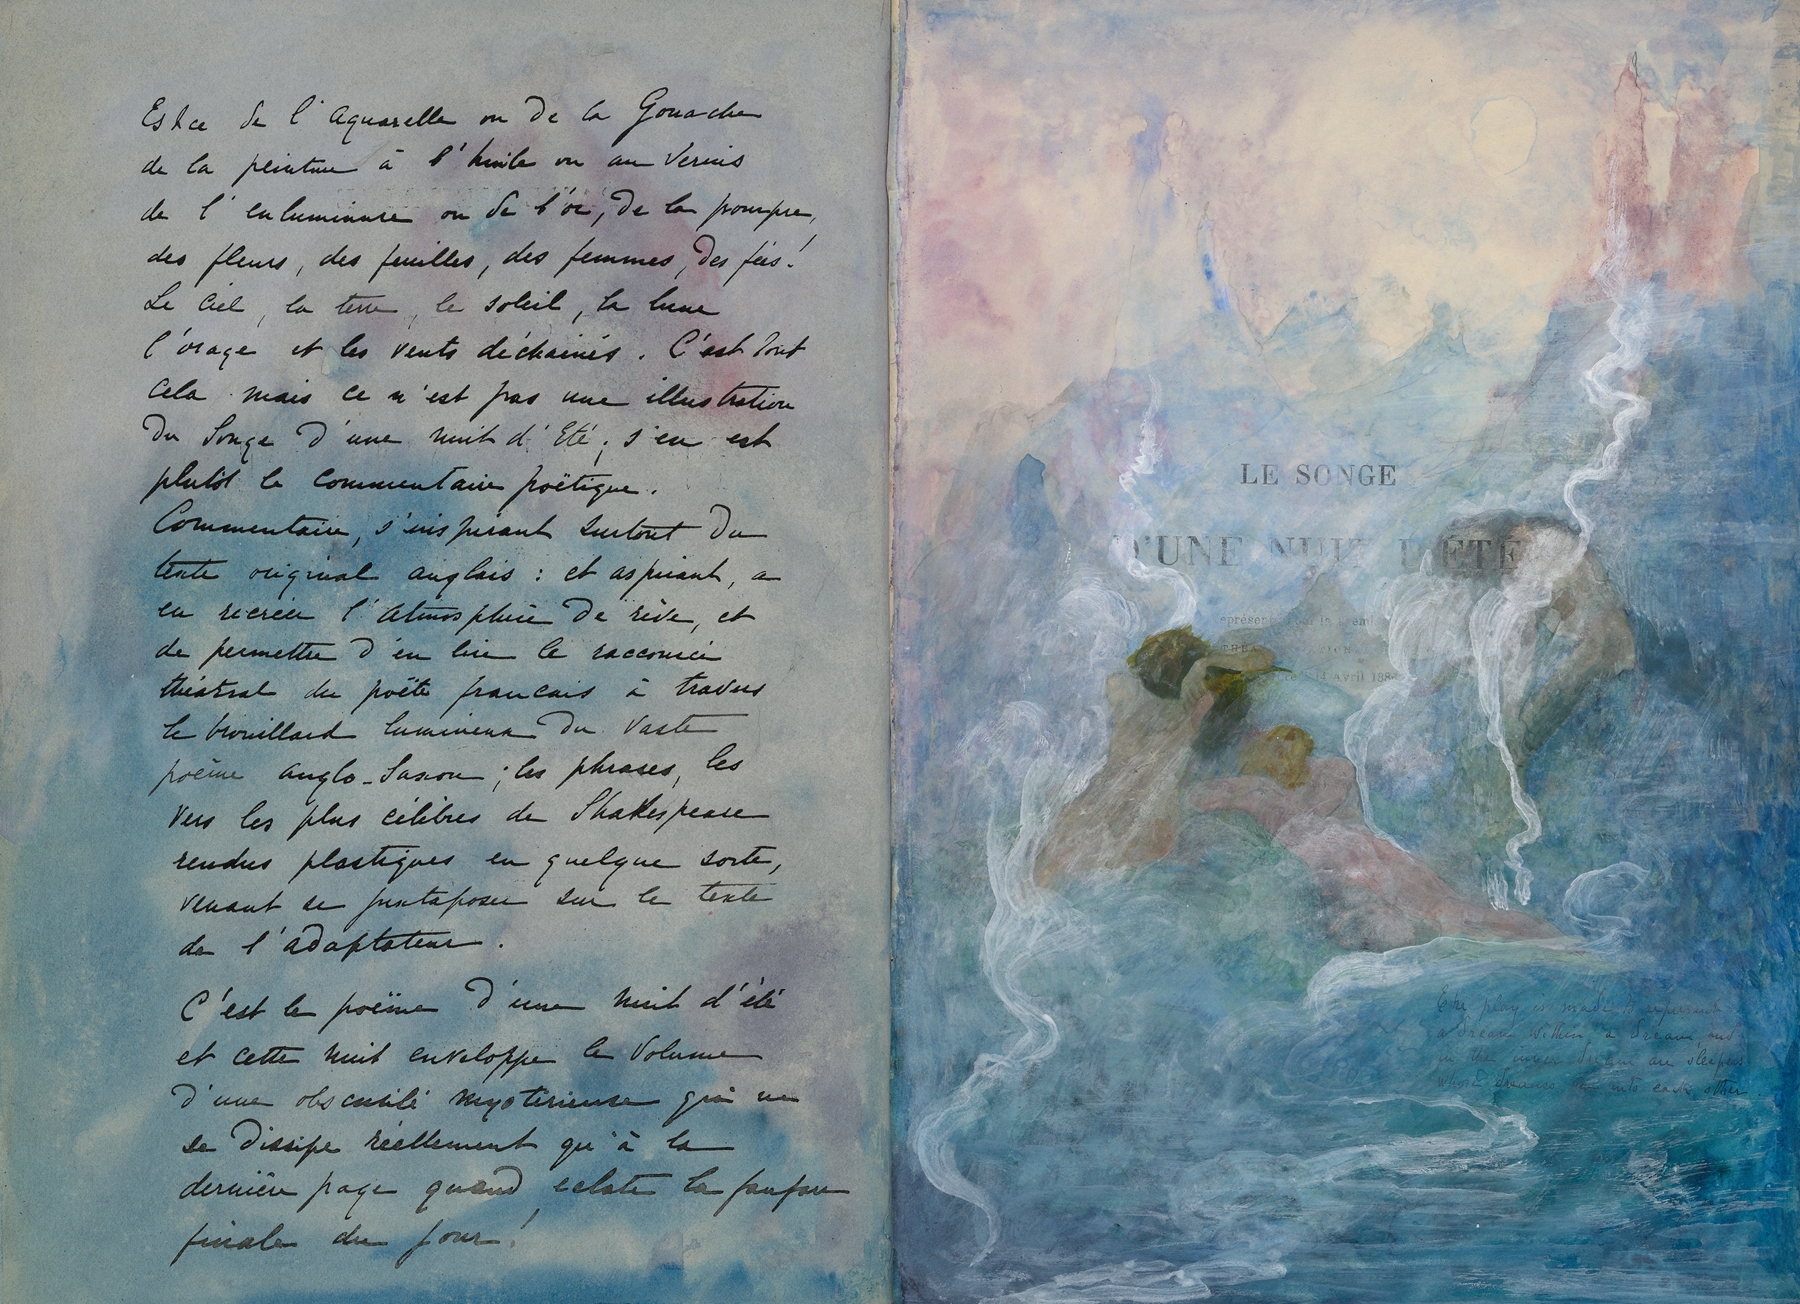 Est ce de l'Aquarelle ou de la Gouache
de la peinture à l'huile ou au Vernis
de l'enluminure ou de l'or, de la pourpre,
des fleurs, des feuilles, des femmes, des fées!
Le Ciel, la terre, le soleil, la lune
l'orage et les vents déchainés. C'est tout
cela mais ce n'est pas une illustration
du Songe d'une nuit d'Eté; s'en est
plutôt le Commentaire poëtique.
Commentaire, s'inspirant surtout du
texte original anglais: et aspirant, a
en recréer l'atmosphère de rêve, et
de permettre d'en lire le raccourci
théatral du poëte francais à travers
le brouillard lumineux du vaste
poëme anglo-Saxon; les phrases, les
vers les plus célèbres de Shakespeare
rendus plastiques en quelque sorte,
venant se juxtaposer sur le texte
de l'adaptateur.
C'est le poëme d'une nuit d'été
et cette nuit enveloppe le Volume
d'une obscurité mystérieuse qui ne
se dissipe réellement qu'à la
dernière page quand eclate la fanfare
finale du jour!
LE SONGE
D'UNE NUIT D'ÉTÉ
14 Avril 188
The play is made to represent
a dream within a dream, and
in the inner dream are sleepers
whose dreams run into each other.